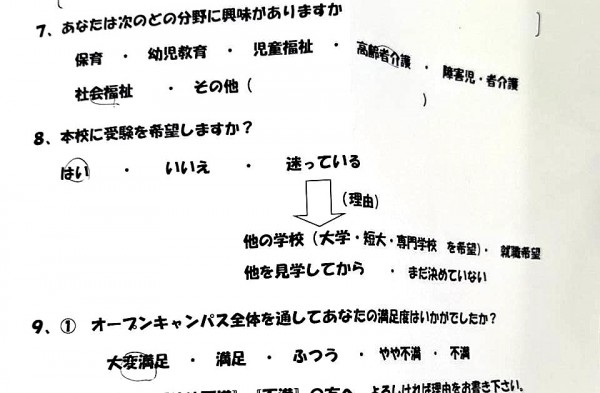 7、あなたは次のどの分野に興味がありますか
保育 ・ 幼児教育 ・ 児童福祉 ・ 高齢者介護 ・ 障害児・者介護
社会福祉 ・ その他（ ）
8、本校に受験を希望しますか？
はい ・ いいえ ・ 迷っている
（理由）
他の学校（大学・短大・専門学校 を希望）・ 就職希望
他を見学してから ・ まだ決めていない
9、① オープンキャンパス全体を通してあなたの満足度はいかがでしたか？
大変満足 ・ 満足 ・ ふつう ・ やや不満 ・ 不満
よろしければ理由をお書き下さい。